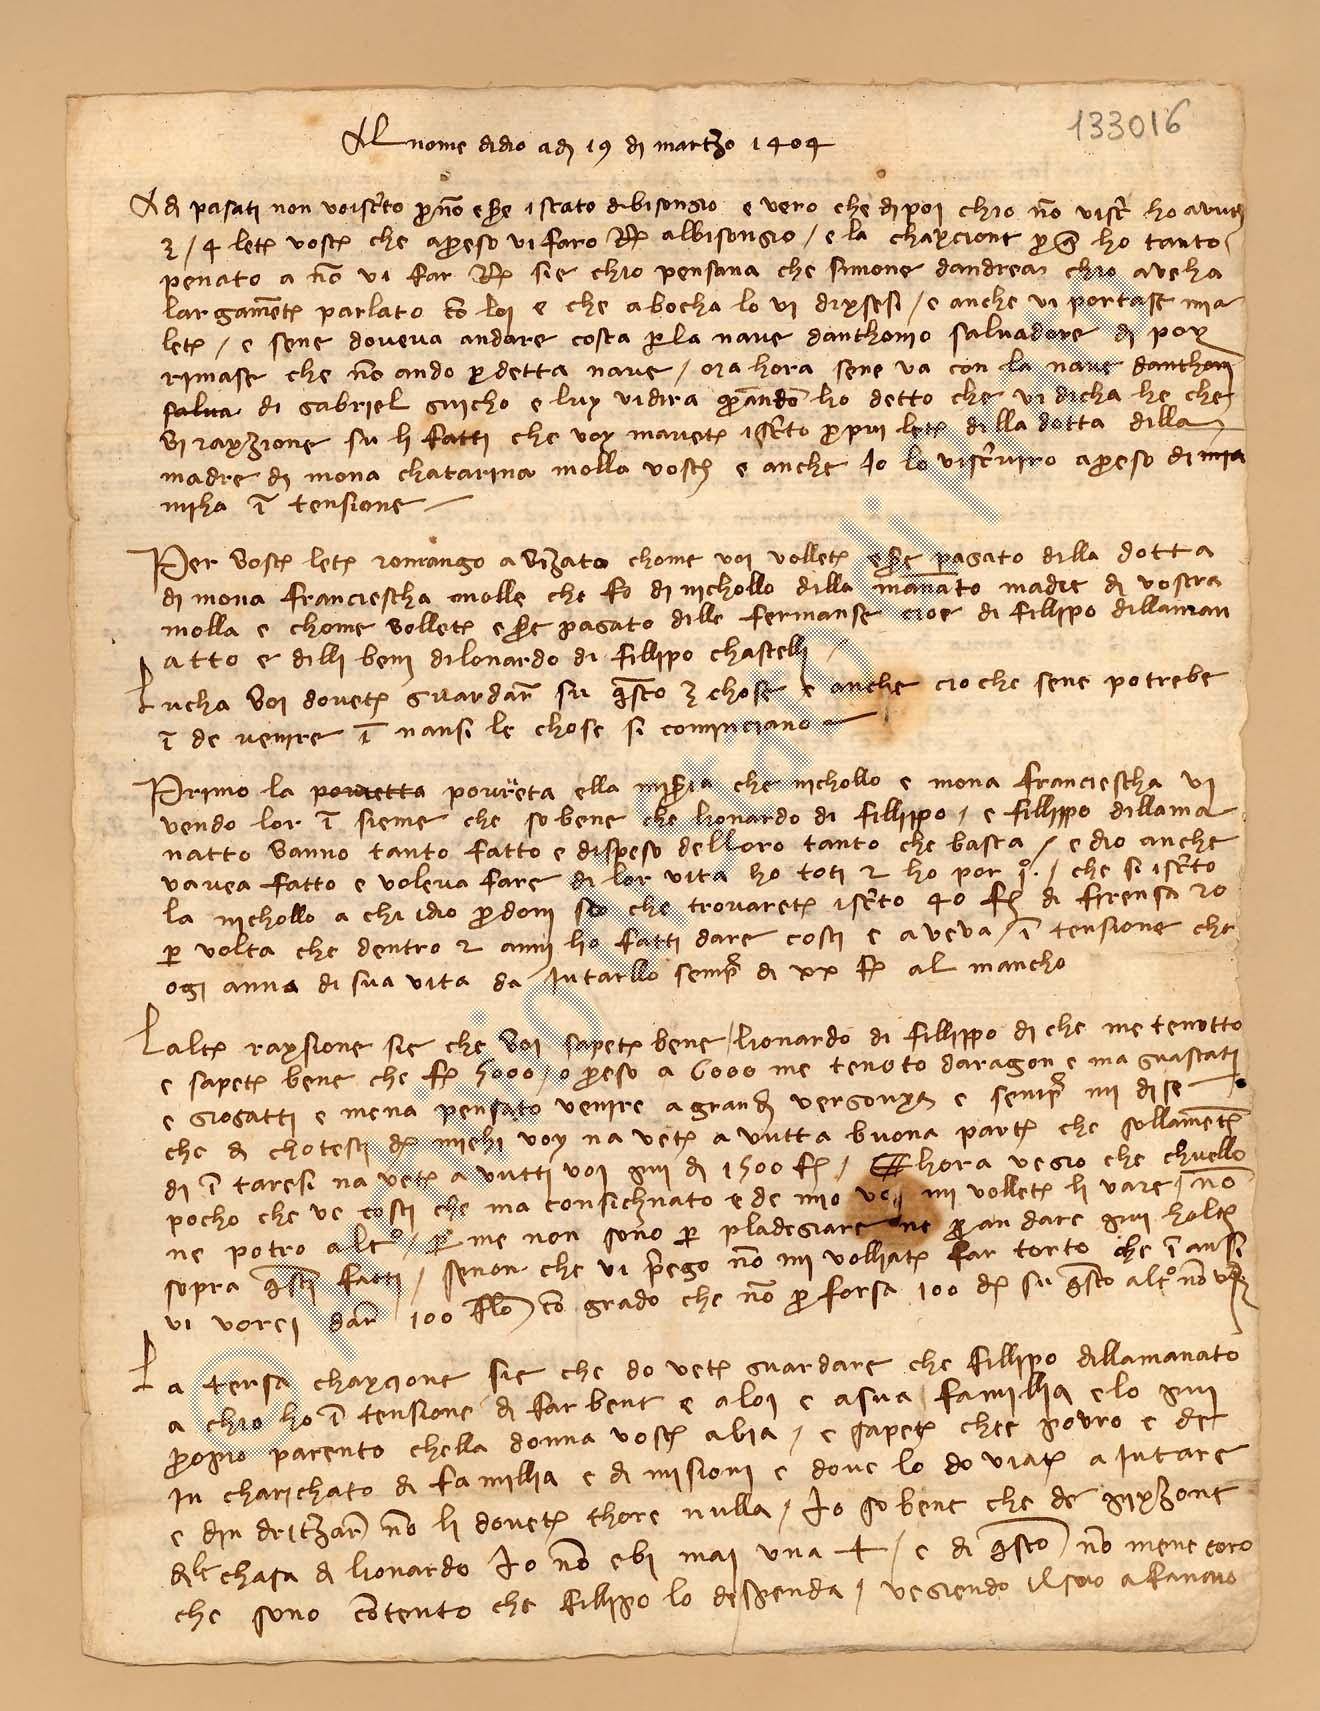 133016
Al nome didio adi 19 di martzo 1404
Adi pasati non voiscrto p no eser istato dibisongio e vero che dipoi chio no viscr ho avuti
3 / 4 letr vostr che apreso vi faro Rx albisongio / e la chaxcione p q ho tanto
penato a no vi far Rx sie chio pensava che simone dandrea chio aveha
largamete parlato co loi e che abocha lo vi dixsesi / e anche vi portase mia
letr / e sene doveva andare costa p la nave danthonio salvadore di poy
rimase che no ando p detta nave / ora hora sene va con la nave danthoni
salva di gabriel guicho e luy vidira ho detto che vi dicha he che
vi raxzione su li fatti che voy mavetr iscrto p piu letr dilla dotta dilla
madre di mona chatarina molla vostr e anche Io lo viscriviro apreso di mia
miha i tensione
Per vostr letr romango avizato chome voi volletr eser pagato dilla dotta
di mona franciescha molle che fo di nichollo dilla manato madre di vostra
molla e chome volletr eser pagato dille fermanse cioe di fillipo dillaman
atto e dilli beni dilonardo di fillipo chastelli /
Lucha voi dovetr guardar su qsto 3 chose e anche cio che sene potrebe
i de venire i nansi le chose si cominciano
Primo la povretta povreta ella misria che nichollo e mona franciescha vi
vendo lor i sieme che so bene che lionardo di fillippo / e fillippo dillama
natto vanno tanto fatto e dispeso delloro tanto che basta / e dio anche
vavea fatto e voleva fare di lor vita ho toti 2 ho por i° / che si iscrto
la nichollo a chi idio pdoni sio che trovaretr iscrto 40 fr di firensa 20
p volta che dentro 2 anni ho fatti dare costi e aveva / i tensione che
ogi anna di sua vita da Iutarllo sempr di xx fr al mancho
Laltr raxsione sie che voi sapetr bene / lionardo di fillippo di che me tenotto
e sapetr bene che fr 5000 / o preso a 6000 me tenoto daragon e ma guastati
e giogatti e mena pensato venire a grand vergonya e sempr mi dise
che di chotesti dr michi voy na vetr a vutta buona partr che sollametr
di i taresi na vetr a vutti voi piu di 1500 fr / hora vegio che chuello
pocho che ve costi che ma consichnato e de mio voi mi volletr li vare / no
ne potro altr° / p me non sono p pladegiare ne p andare piu holtr
sopra qsti fatti / senon che vi prego no mi volliatr far torto che i ansi
vi vorei dar 100 flo co grado che no p forsa 100 dr su qsto altr° no
La tersa chaxcione sie che do vetr guardare che fillipo dillamanato
a chio ho i tensione di far bene e a loi e a sua famillia e lo piu
propio parento chella donna vostr abia / e sapetr chee povro e de
in charichato di famillia e di misioni e dove lo do viatr a Iutare
e din dritzar no li dovetr thore nulla / Io so bene che de pixzone
dele chasa di lionardo Io no ebi mai una + / e di qsto no mene coro
che sono cotento che fillipo lo despenda / vegiendo il suo afanno